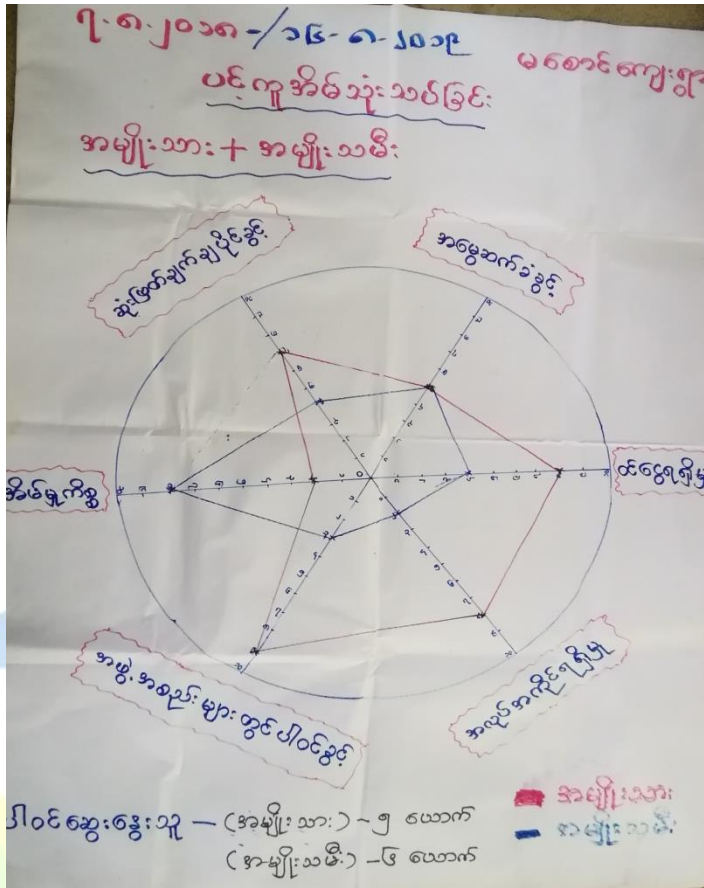 ၇.၈.၂၀၁၈ -/ ၁၆-၈-၂၀၁၉
မစောင်ကျေးရွာ
ပင့်ကူအိမ်သုံးသပ်ခြင်း
အမျိုးသား + အမျိုးသမီး
ဆုံးဖြတ်ချက်ချပိုင်ခွင့်
အမွေဆက်ခံခွင့်
အိမ်မှုကိစ္စ
ဝင်ငွေရရှိမှု
အဖွဲ့အစည်းများတွင်ပါဝင်ခွင့်
အလုပ်အကိုင်ရရှိမှု
ပါဝင်ဆွေးနွေးသူ — (အမျိုးသား) - ၅ ယောက်
(အမျိုးသမီး) - ၆ ယောက်
အမျိုးသား
အမျိုးသမီး